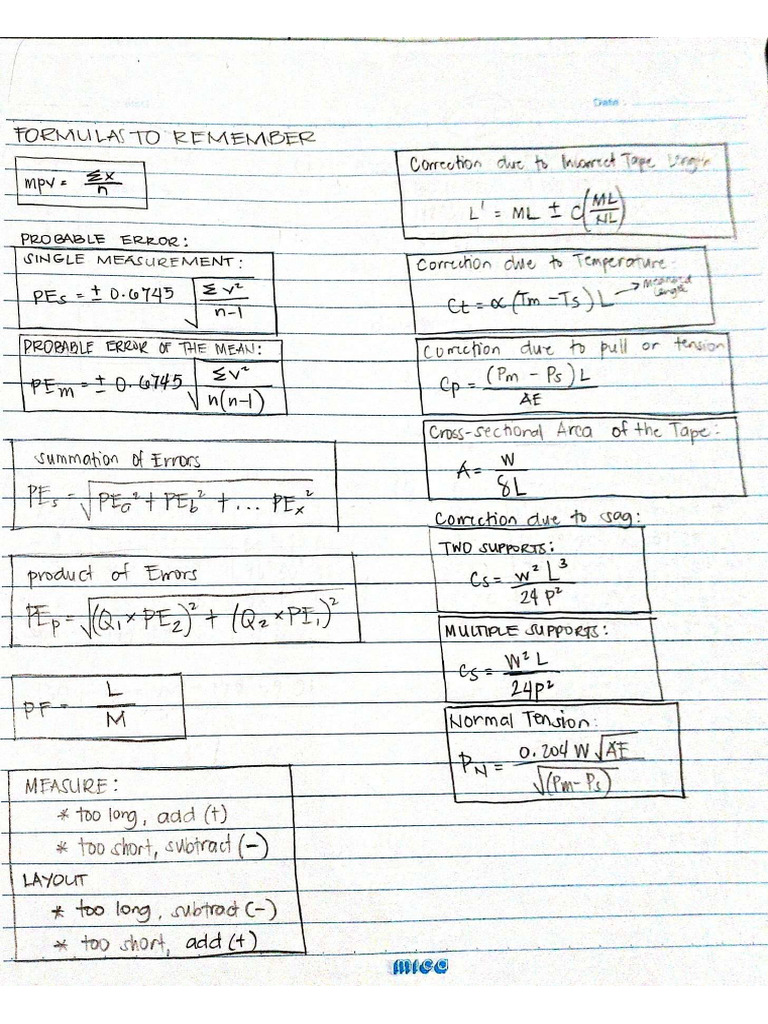 Date:
FORMULAS TO REMEMBER
mpv = Σx/n
PROBABLE ERROR:
SINGLE MEASUREMENT:
PEs = ± 0.6745 √(Σv²/(n-1))
PROBABLE ERROR OF THE MEAN:
PEm = ± 0.6745 √(Σv²/(n(n-1)))
summation of Errors
PEs = √(PEa² + PEb² + ... PEx²)
product of Errors
PEp = √((Q₁ × PE₂)² + (Q₂ × PE₁)²)
PF = L/M
MEASURE:
* too long, add (+)
* too short, subtract (-)
LAYOUT
* too long, subtract (-)
* too short, add (+)
Correction due to Incorrect Tape Length
L' = ML ± C(ML/NL)
Correction due to Temperature:
Ct = ∝ (Tm - Ts) L → measured length
Correction due to pull or tension
Cp = (Pm - Ps) L / AE
Cross-sectional Area of the Tape:
A = W / 8L
Correction due to sag:
TWO SUPPORTS:
Cs = w² L³ / 24 P²
MULTIPLE SUPPORTS:
Cs = W² L / 24P²
Normal Tension:
PN = 0.204 W √AE / √(Pm - Ps)
mica